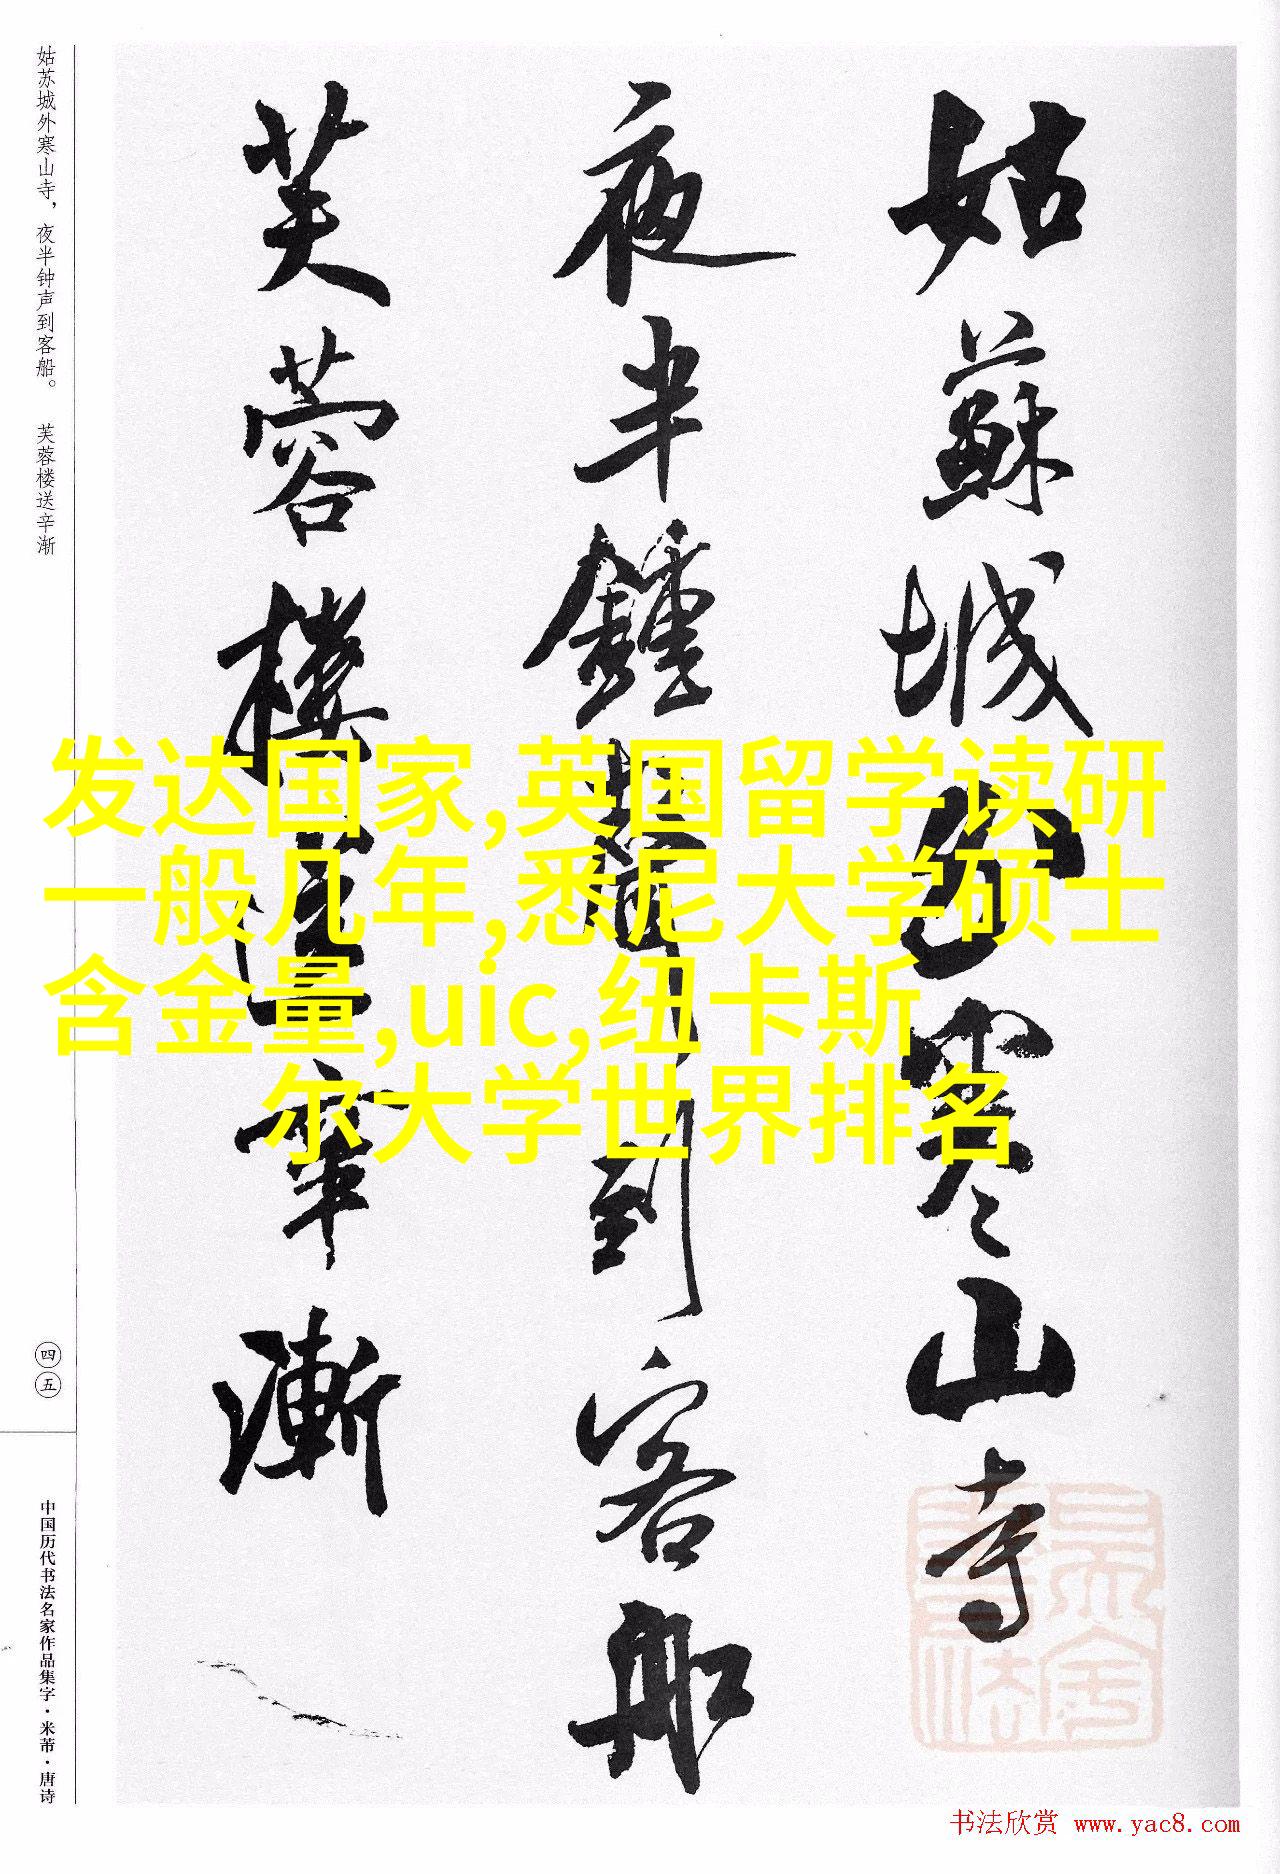 姑苏城外寒山寺，夜半钟声到客船。 芙蓉楼送辛渐
姑蘇城外寒山寺
夜半鍾聲到客船
芙蓉樓送辛漸
发达国家,英国留学读研
一般几年,悉尼大学硕士
含金量,uic,纽卡斯
尔大学世界排名
四五
中国历代书法名家作品集字·米芾·唐诗
书法欣赏 www.yac8.com